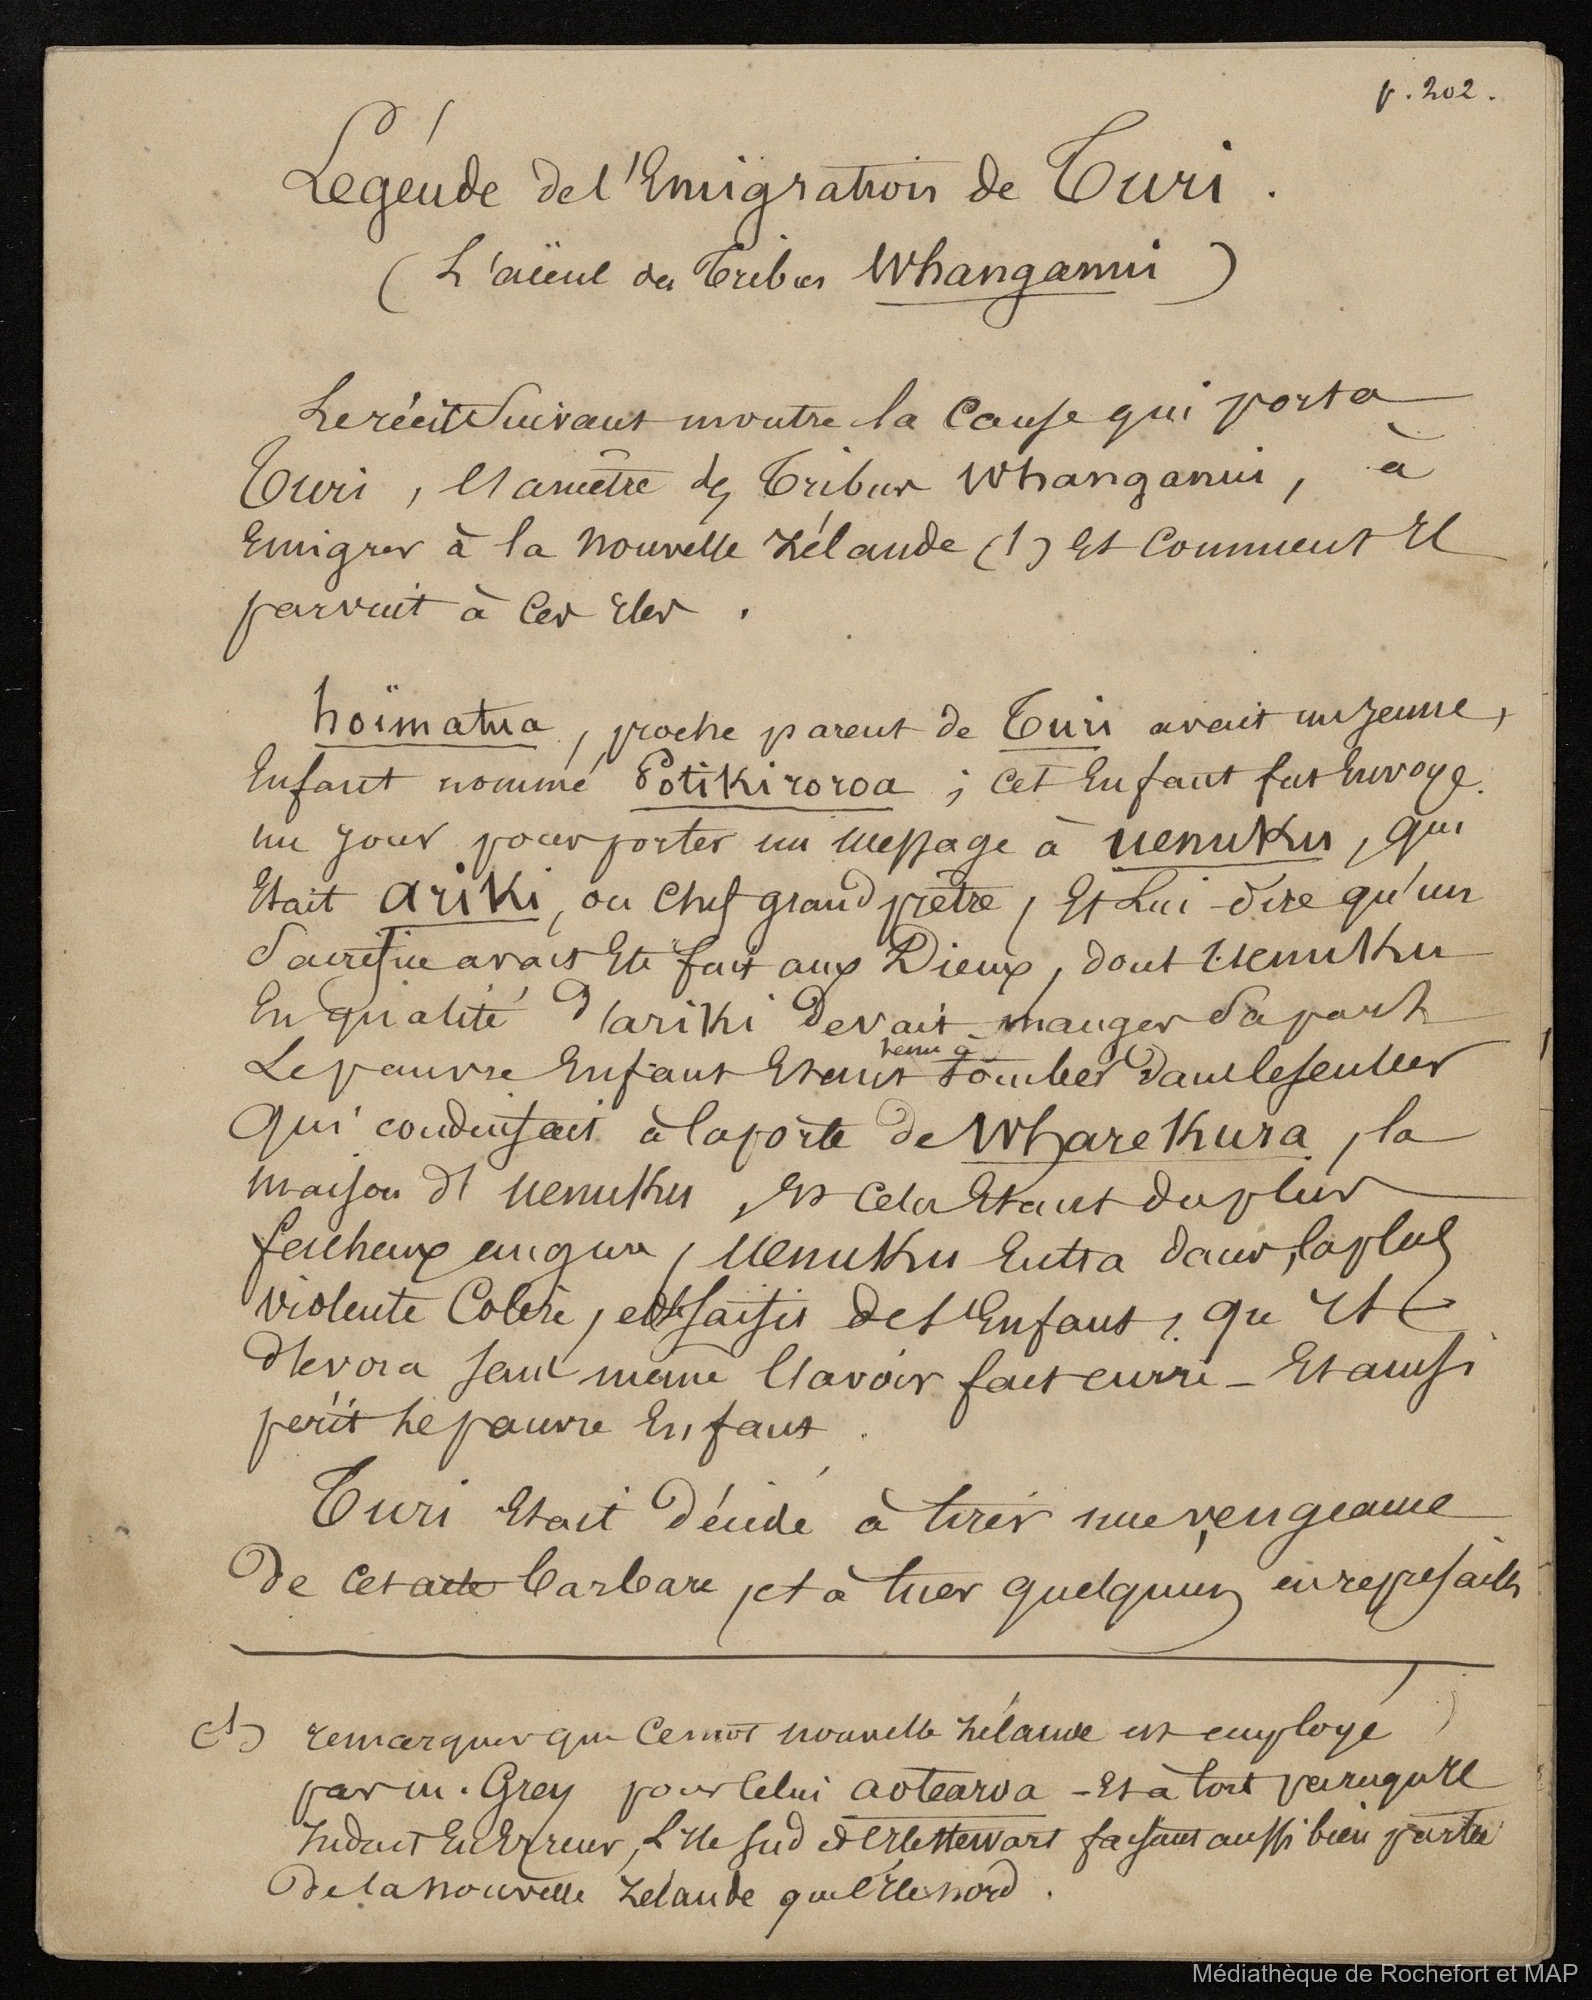 p. 202.
Légende de l'Emigration de Turi.
(L'aïeul des Tribus Whanganui)
Le récit Suivant montre la Cause qui porta
Turi, l'ancêtre des Tribus Whanganui, à
Emigrer à la Nouvelle Zélande (1) Et Comment Il
parvint à Ces Iles.
hoïmatua, proche parent de Turi avait un jeune
Enfant nommé Potikiroroa ; Cet Enfant fut Envoyé
un jour pour porter un message à Uenuku, qui
Etait ariki, ou Chef grand prêtre, Et Lui dire qu'un
Sacrifice avait Eté fait aux Dieux, dont Uenuku
En qualité d'ariki devait manger Sa part
venu à
Le pauvre Enfant Etant tomber dans le sentier
qui conduisait à la porte de Wharekura, la
maison d' Uenuku, Et Cela Etant du plus
facheux augure, Uenuku Entra dans la plus
violente Colère, et se saisit de l'Enfant, qu'Il
dévora sans même l'avoir fait cuire - Et ainsi
périt le pauvre Enfant.
Turi Etait décidé à tirer une vengeance
de Cet acte barbare, et à tuer quelqu'un en représailles
(1) remarquer que Ce mot nouvelle Zélande est employé
par M. Grey pour Celui aotearoa - Et à tort parce qu'Il
Induit En Erreur, L'Ile Sud et l'Ile Stewart faisant aussi bien partie
de la Nouvelle Zélande que l'Ile Nord.
Médiathèque de Rochefort et MAP